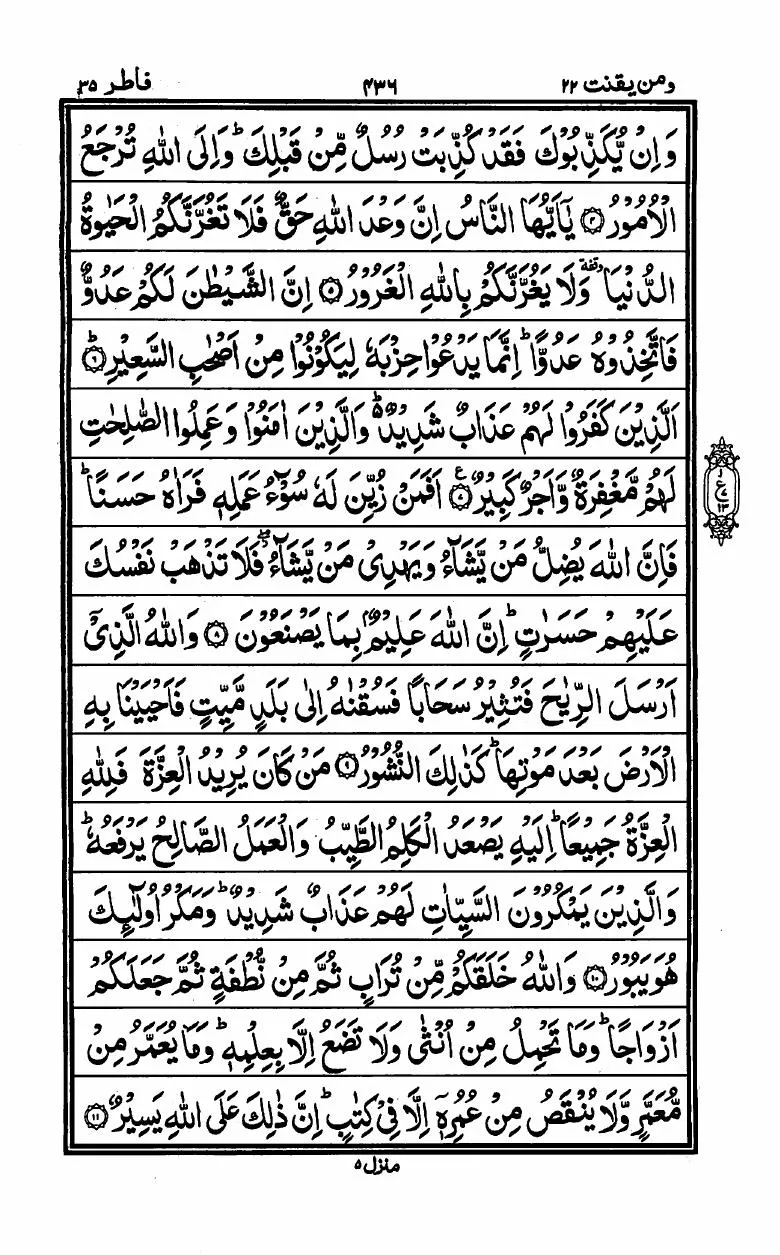 ومن یقنت ۲۲ ۴۳۶ فاطر ۳۵
وَاِنْ يُّكَذِّبُوْكَ فَقَدْ كُذِّبَتْ رُسُلٌ مِّنْ قَبْلِكَ ؕ وَاِلَى اللّٰهِ تُرْجَعُ
الْاُمُوْرُ ۝۴ يٰۤاَيُّهَا النَّاسُ اِنَّ وَعْدَ اللّٰهِ حَقٌّ فَلَا تَغُرَّنَّكُمُ الْحَيٰوةُ
الدُّنْيَا ٙ وَلَا يَغُرَّنَّكُمْ بِاللّٰهِ الْغَرُوْرُ ۝۵ اِنَّ الشَّيْطٰنَ لَكُمْ عَدُوٌّ
فَاتَّخِذُوْهُ عَدُوًّا ؕ اِنَّمَا يَدْعُوْا حِزْبَهٗ لِيَكُوْنُوْا مِنْ اَصْحٰبِ السَّعِيْرِ ۝۶ؕ
اَلَّذِيْنَ كَفَرُوْا لَهُمْ عَذَابٌ شَدِيْدٌ ؕ۬ وَالَّذِيْنَ اٰمَنُوْا وَعَمِلُوا الصّٰلِحٰتِ
لَهُمْ مَّغْفِرَةٌ وَّاَجْرٌ كَبِيْرٌ ۝۷ع اَفَمَنْ زُيِّنَ لَهٗ سُوْٓءُ عَمَلِهٖ فَرَاٰهُ حَسَنًا ؕ
ع ۷ ۱۳
فَاِنَّ اللّٰهَ يُضِلُّ مَنْ يَّشَآءُ وَيَهْدِيْ مَنْ يَّشَآءُ ۖ فَلَا تَذْهَبْ نَفْسُكَ
عَلَيْهِمْ حَسَرٰتٍ ؕ اِنَّ اللّٰهَ عَلِيْمٌۢ بِمَا يَصْنَعُوْنَ ۝۸ وَاللّٰهُ الَّذِيْۤ
اَرْسَلَ الرِّيٰحَ فَتُثِيْرُ سَحَابًا فَسُقْنٰهُ اِلٰى بَلَدٍ مَّيِّتٍ فَاَحْيَيْنَا بِهِ
الْاَرْضَ بَعْدَ مَوْتِهَا ؕ كَذٰلِكَ النُّشُوْرُ ۝۹ مَنْ كَانَ يُرِيْدُ الْعِزَّةَ فَلِلّٰهِ
الْعِزَّةُ جَمِيْعًا ؕ اِلَيْهِ يَصْعَدُ الْكَلِمُ الطَّيِّبُ وَالْعَمَلُ الصَّالِحُ يَرْفَعُهٗ ؕ
وَالَّذِيْنَ يَمْكُرُوْنَ السَّيِّاٰتِ لَهُمْ عَذَابٌ شَدِيْدٌ ؕ وَمَكْرُ اُولٰٓئِكَ
هُوَ يَبُوْرُ ۝۱۰ وَاللّٰهُ خَلَقَكُمْ مِّنْ تُرَابٍ ثُمَّ مِنْ نُّطْفَةٍ ثُمَّ جَعَلَكُمْ
اَزْوَاجًا ؕ وَمَا تَحْمِلُ مِنْ اُنْثٰى وَلَا تَضَعُ اِلَّا بِعِلْمِهٖ ؕ وَمَا يُعَمَّرُ مِنْ
مُّعَمَّرٍ وَّلَا يُنْقَصُ مِنْ عُمُرِهٖۤ اِلَّا فِيْ كِتٰبٍ ؕ اِنَّ ذٰلِكَ عَلَى اللّٰهِ يَسِيْرٌ ۝۱۱
منزل ۵